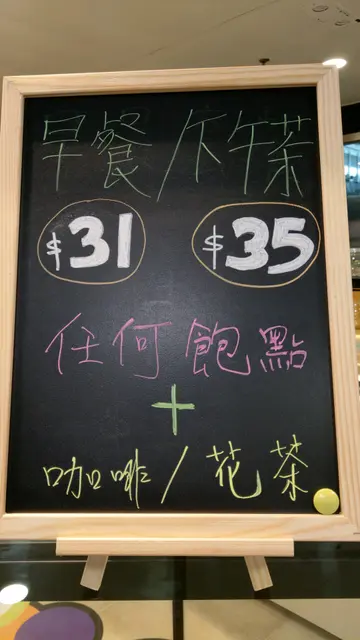 早餐/下午茶
$31 $35
任何飽點
+
咖啡/花茶